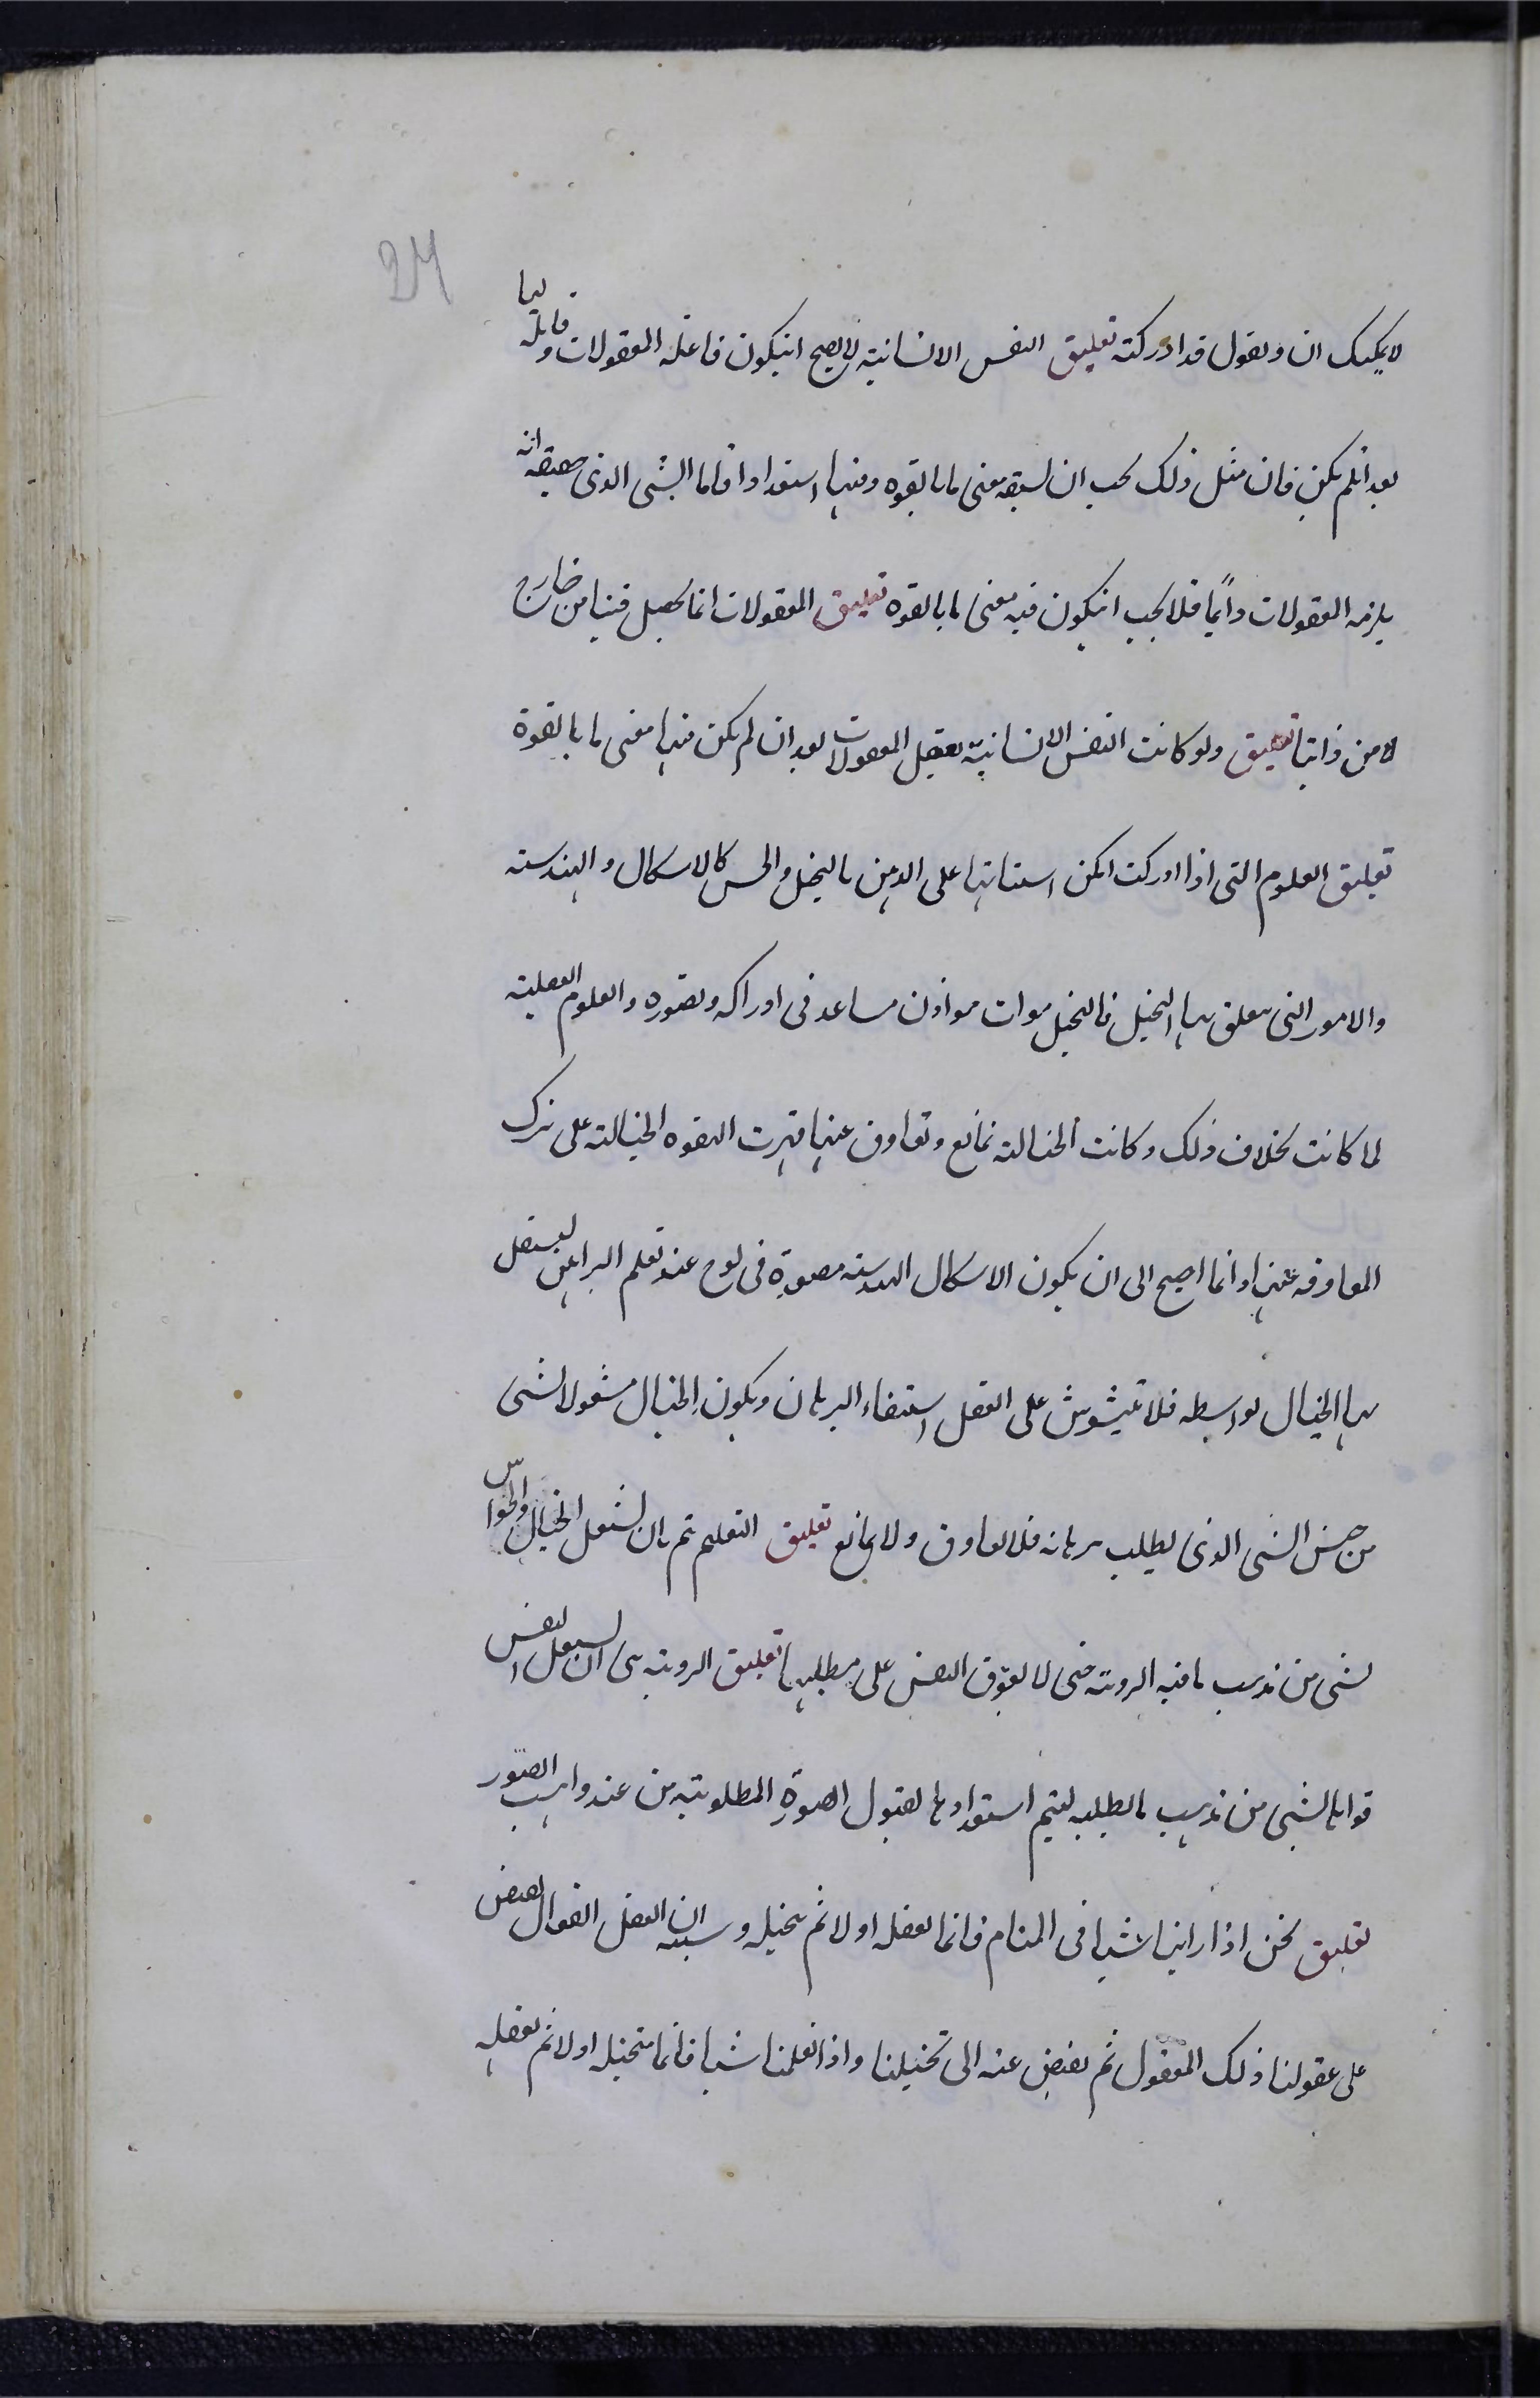 24
لا يمكنك ان وتقول قد ادركته تعليق النفس الانسانية لا يصح انيكون فاعلة المعقولات وقابلة لها
بعد انلم يكن فان مثل ذلك يجب ان يسبقه معنى ما بالقوه وفيها استعداد فاما الشى الذى حقيقته انه
يلزمه المعقولات دائما فلا يجب انيكون فيه معنى ما بالقوه تعليق المعقولات انما يحصل فينا من خارج
لا من ذاتنا تعليق ولو كانت النفس الانسانية تعقل المعقولات بعد ان لم يكن فيها معنى ما بالقوة
تعليق العلوم التى اذا ادركت امكن استثباتها على الذهن بالتخيل والحس كالاشكال والهندسته
والامور التى يتعلق بها التخيل فالتخيل موات موازن مساعد فى ادراكه وتصوره والعلوم العقلية
لما كانت بخلاف ذلك وكانت الخيالته تمانع وتعاوق عنها قهرت القوه الخيالته على ترك
المعاوقه عنها وانما احتيج الى ان يكون الاشكال الهندسته مصورة فى لوح عند تعلم البراهين ليستغل
بها الخيال بواسطه فلا تشوش على العقل استيفاء البرهان ويكون الخيال مشغولا بشى
من جنس الشى الذى يطلب برهانه فلا يعاوق ولا يمانع تعليق التعليم تم بان يشغل الخيال والحواس
بشى من مذهب ما فيه الرويته حتى لا يعوق النفس على مطلبها تعليق الرويته هى ان تشغل النفس
قواها بشى من مذهب ما يطلبه ليتم استعدادها لقبول الصورة المطلوبته من عند واهب الصور
تعليق نحن اذا راينا شيا فى المنام فانما نعقله اولا ثم نتخيله وسببه ان العقل الفعال يفيض
على عقولنا ذلك المعقول ثم يفيض عنه الى تخيلنا واذا تعلمنا شيا فانما نتخيله اولا ثم نعقله